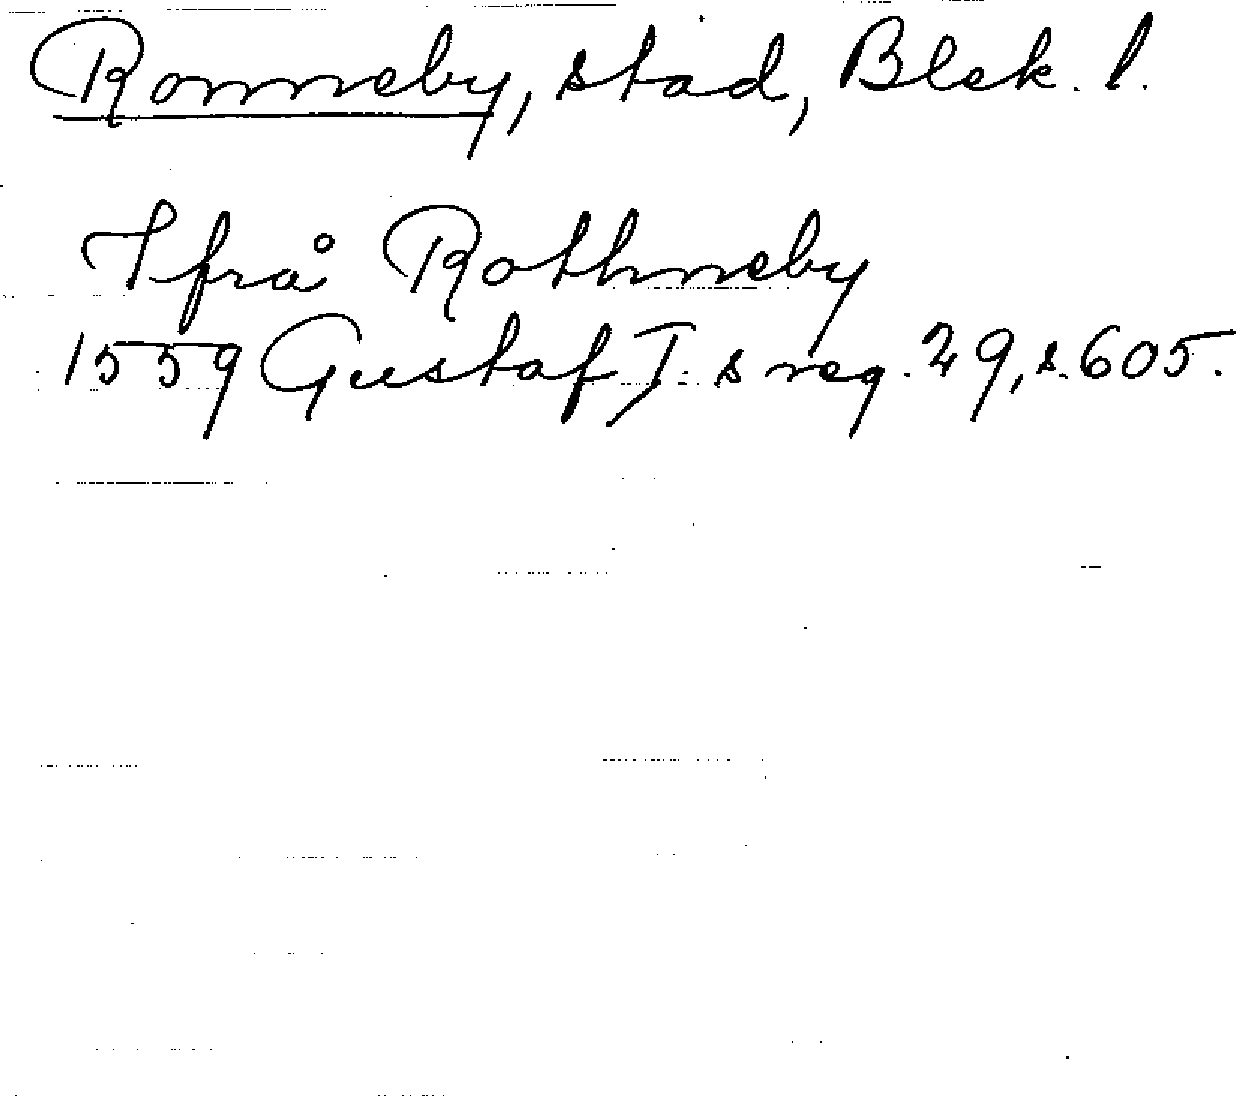 Ronneby, stad, Blek. l.
Ifrå Rothneby
1559 Gustaf I:s reg. 29, s. 605.